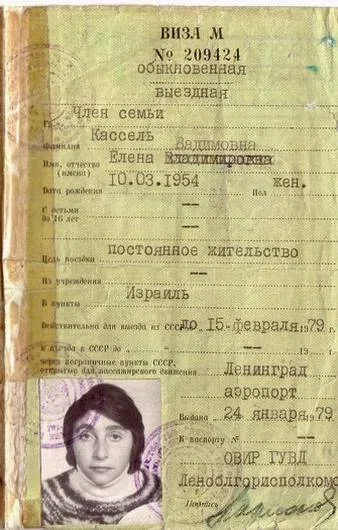 ВИЗА М
№ 209424
обыкновенная
выездная
Член семьи
Гр.
Кассель
Фамилия Вадимовна
Имя, отчество Елена Владимировна
(имена)
Дата рождения 10.03.1954 Пол жен.
С детьми --
до 16 лет
--
Цель поездки постоянное жительство
Из учреждения --
В пункты Израиль
Действительна для выезда из СССР до „ до 15 “ февраля 1979 г.
и въезда в СССР до „ -- “ -- 19 г.
через пограничные пункты СССР,
открытые для пассажирского движения Ленинград
аэропорт
Выдана 24 января 1979
К паспорту № --
ОВИР ГУВД
Леноблгорисполкома
Подпись